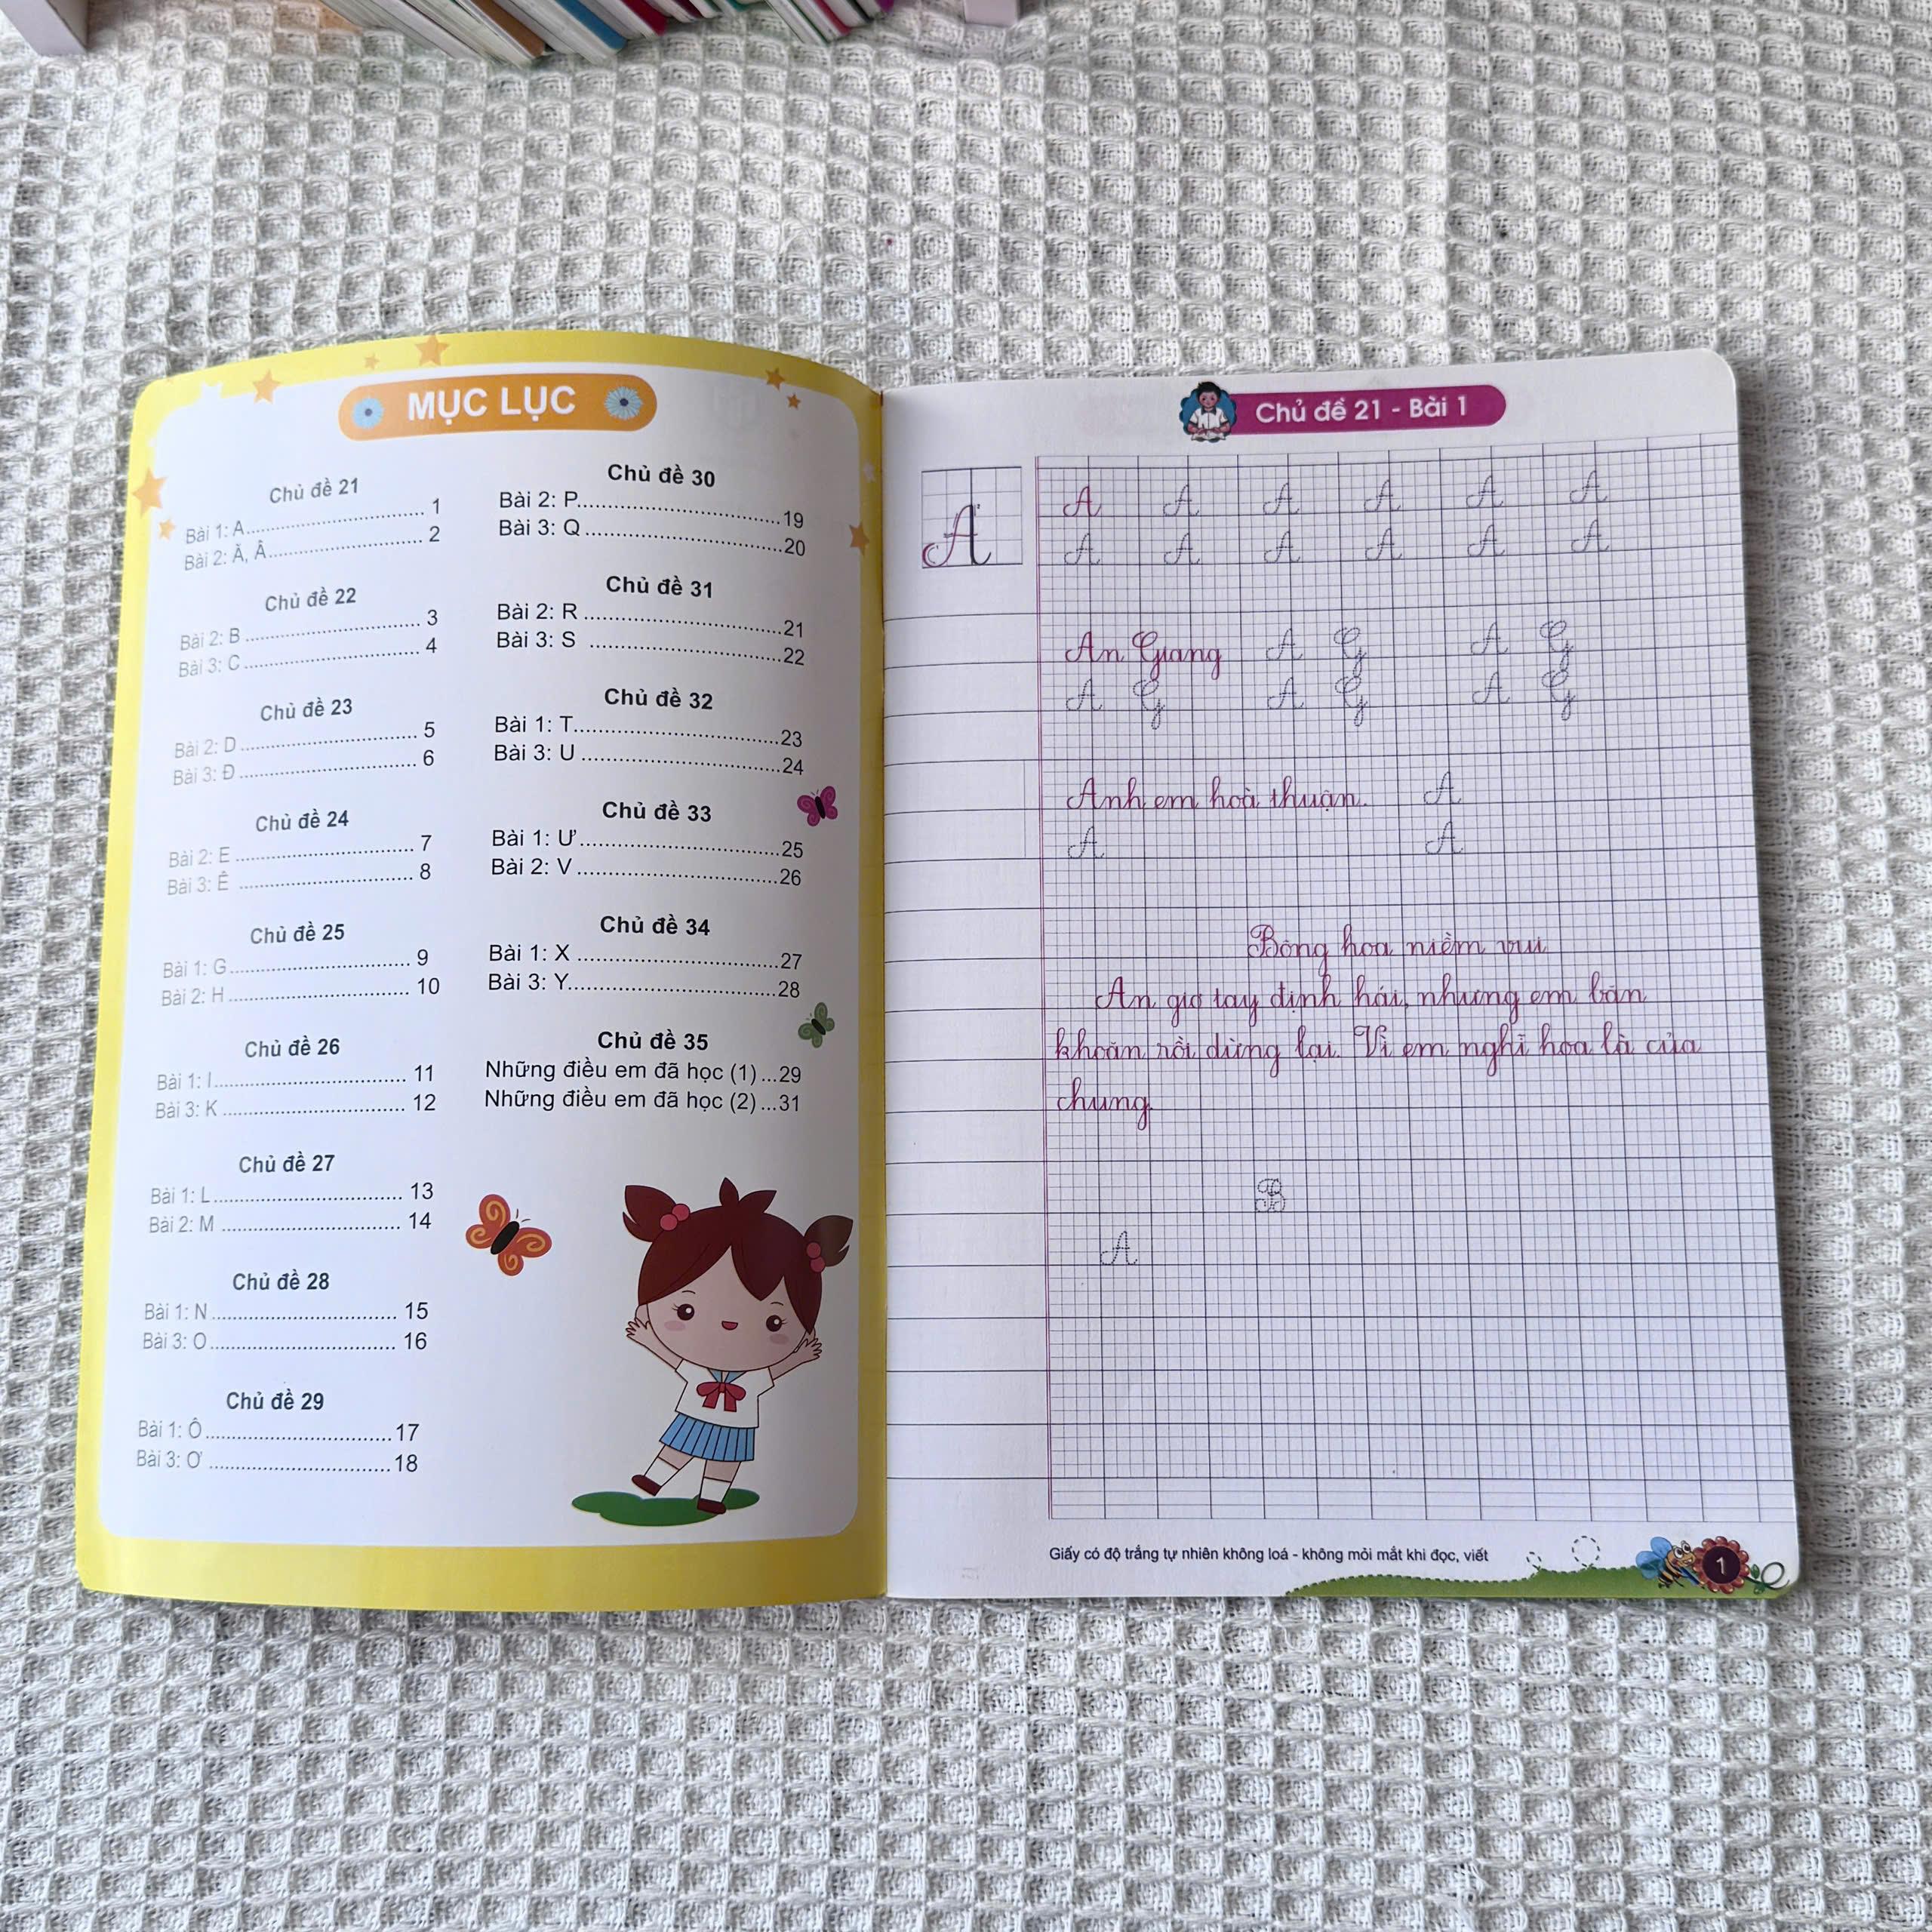 MỤC LỤC
Chủ đề 21
Bài 1: A.................... 1
Bài 2: Ă, Â.................... 2
Chủ đề 22
Bài 2: B .................... 3
Bài 3: C .................... 4
Chủ đề 23
Bài 2: D .................... 5
Bài 3: Đ .................... 6
Chủ đề 24
Bài 2: E .................... 7
Bài 3: Ê .................... 8
Chủ đề 25
Bài 1: G .................... 9
Bài 2: H .................... 10
Chủ đề 26
Bài 1: I.................... 11
Bài 3: K .................... 12
Chủ đề 27
Bài 1: L .................... 13
Bài 2: M .................... 14
Chủ đề 28
Bài 1: N .................... 15
Bài 3: O .................... 16
Chủ đề 29
Bài 1: Ô .................... 17
Bài 3: Ơ .................... 18
Chủ đề 30
Bài 2: P....................19
Bài 3: Q ....................20
Chủ đề 31
Bài 2: R ....................21
Bài 3: S ....................22
Chủ đề 32
Bài 1: T....................23
Bài 3: U ....................24
Chủ đề 33
Bài 1: Ư....................25
Bài 2: V ....................26
Chủ đề 34
Bài 1: X ....................27
Bài 3: Y....................28
Chủ đề 35
Những điều em đã học (1) ...29
Những điều em đã học (2) ...31
Chủ đề 21 - Bài 1
A
A A A A A A
A A A A A A
An Giang A G A G
A G A G A G
Anh em hoà thuận. A
A A
Bông hoa niềm vui
An giơ tay định hái, nhưng em băn
khoăn rồi dừng lại. Vì em nghĩ hoa là của
chung.
B
A
Giấy có độ trắng tự nhiên không loá - không mỏi mắt khi đọc, viết
1